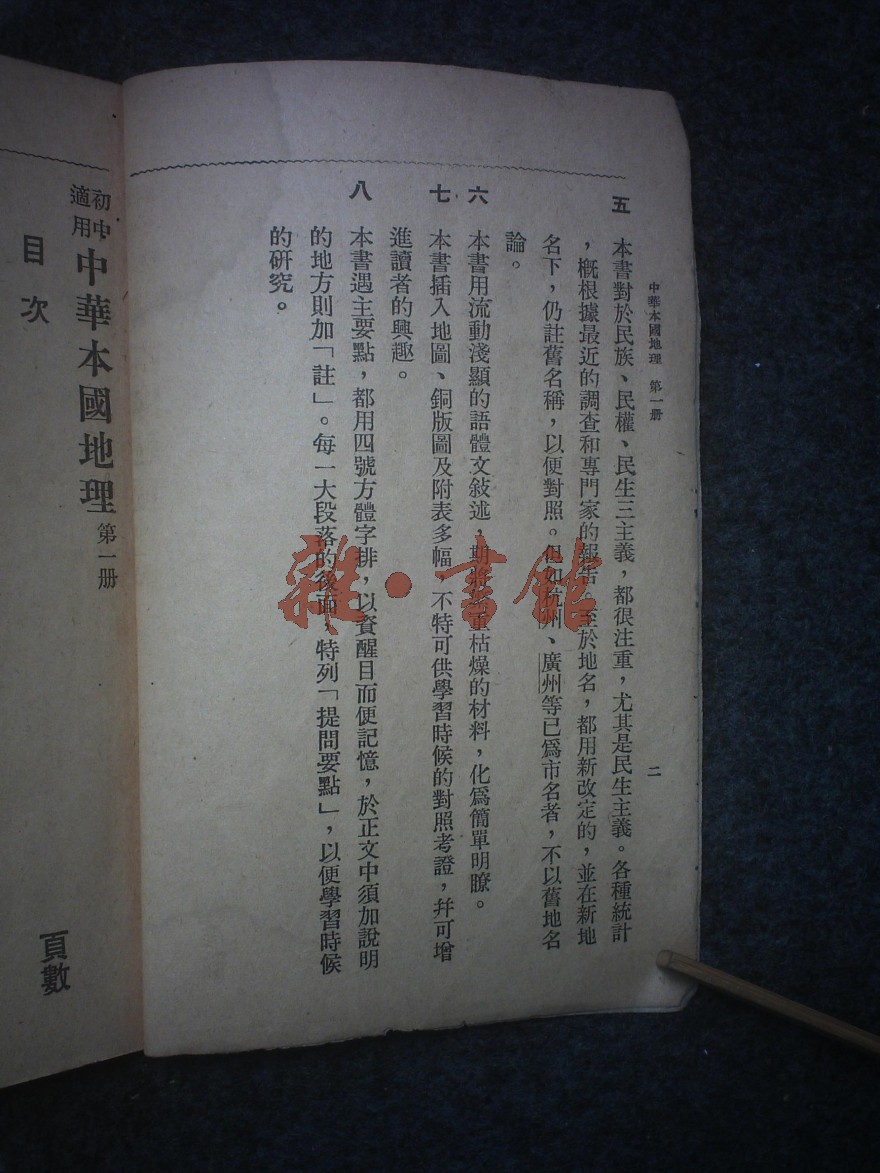 中華本國地理 第一册
二
五 本書對於民族、民權、民生三主義，都很注重，尤其是民生主義。各種統計
，概根據最近的調查和專門家的報告 至於地名，都用新改定的，並在新地
名下，仍註舊名稱，以便對照。但如杭州、廣州等已爲市名者，不以舊地名
論。
六 本書用流動淺顯的語體文敍述，期將 重枯燥的材料，化爲簡單明瞭。
七 本書插入地圖、銅版圖及附表多幅，不特可供學習時候的對照考證，幷可增
進讀者的興趣。
八 本書遇主要點，都用四號方體字排，以資醒目而便記憶，於正文中須加說明
的地方則加「註」。每一大段落的後面，特列「提問要點」，以便學習時候
的研究。
初中適用 中華本國地理 第一册
目次
頁數
雜·書館